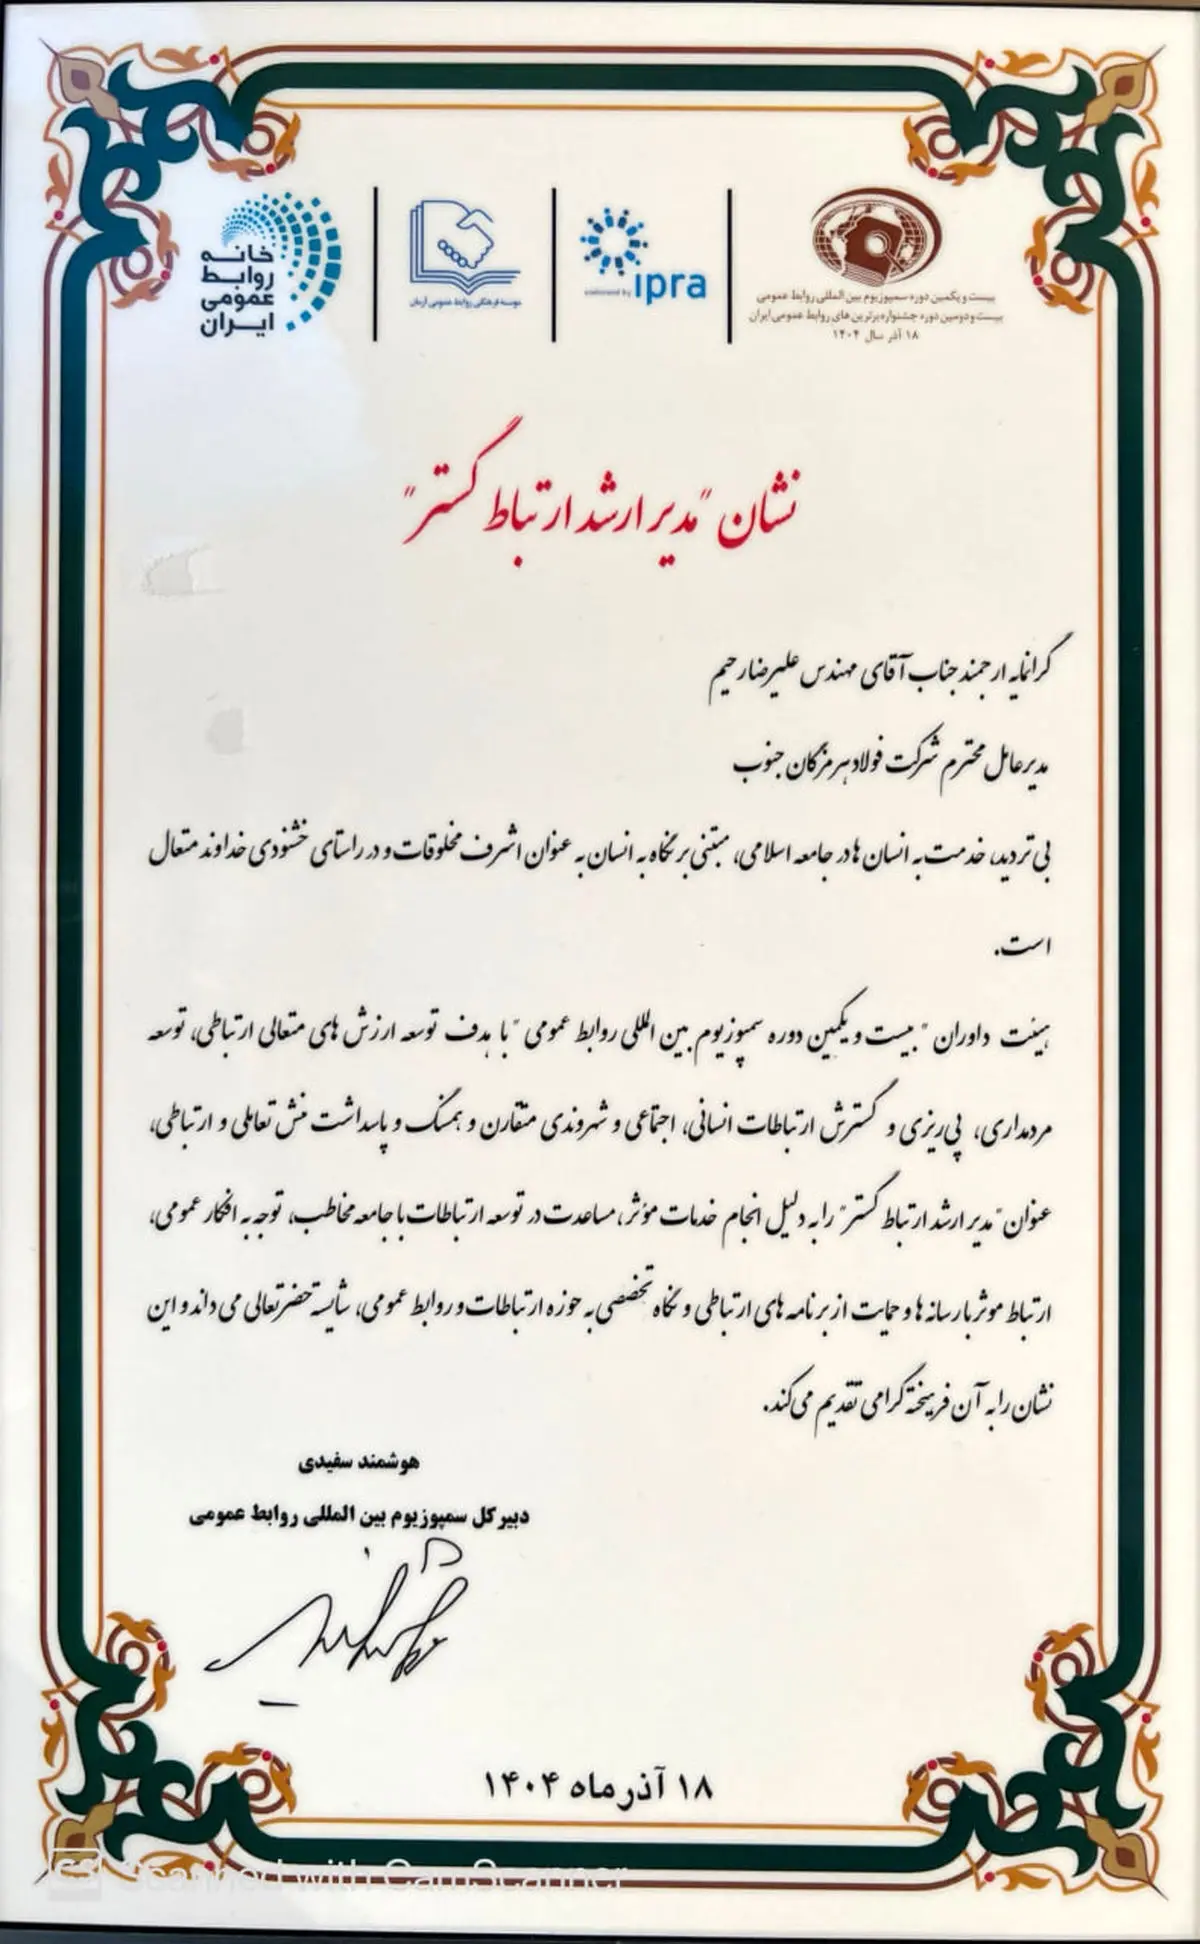 خانه
روابط
عمومی
ایران
موسسه فرهنگی روابط عمومی آرمان
endorsed by ipra
بیست و یکمین دوره سمپوزیوم بین المللی روابط عمومی
بیست و دومین دوره جشنواره برترین های روابط عمومی ایران
۱۸ آذر سال ۱۴۰۴
نشان "مدیر ارشد ارتباط گستر"
گرانمایه ارجمند جناب آقای مهندس علیرضا رحیم
مدیرعامل محترم شرکت فولاد هرمزگان جنوب
بی تردید، خدمت به انسان ها در جامعه اسلامی، مبتنی بر نگاه به انسان به عنوان اشرف مخلوقات و در راستای خشنودی خداوند متعال
است.
هیئت داوران "بیست و یکمین دوره سمپوزیوم بین المللی روابط عمومی" با هدف توسعه ارزش های متعالی ارتباطی، توسعه
مردمداری، پی ریزی و گسترش ارتباطات انسانی، اجتماعی و شهروندی متقارن و همسنگ و پاسداشت منش تعاملی و ارتباطی،
عنوان "مدیر ارشد ارتباط گستر" را به دلیل انجام خدمات مؤثر، مساعدت در توسعه ارتباطات با جامعه مخاطب، توجه به افکار عمومی،
ارتباط موثر با رسانه ها و حمایت از برنامه های ارتباطی و نگاه تخصصی به حوزه ارتباطات و روابط عمومی، شایسته حضرتعالی می داند و این
نشان را به آن فرهیخته گرامی تقدیم می کند.
هوشمند سفیدی
دبیر کل سمپوزیوم بین المللی روابط عمومی
۱۸ آذر ماه ۱۴۰۴
CS Scanned with CamScanner